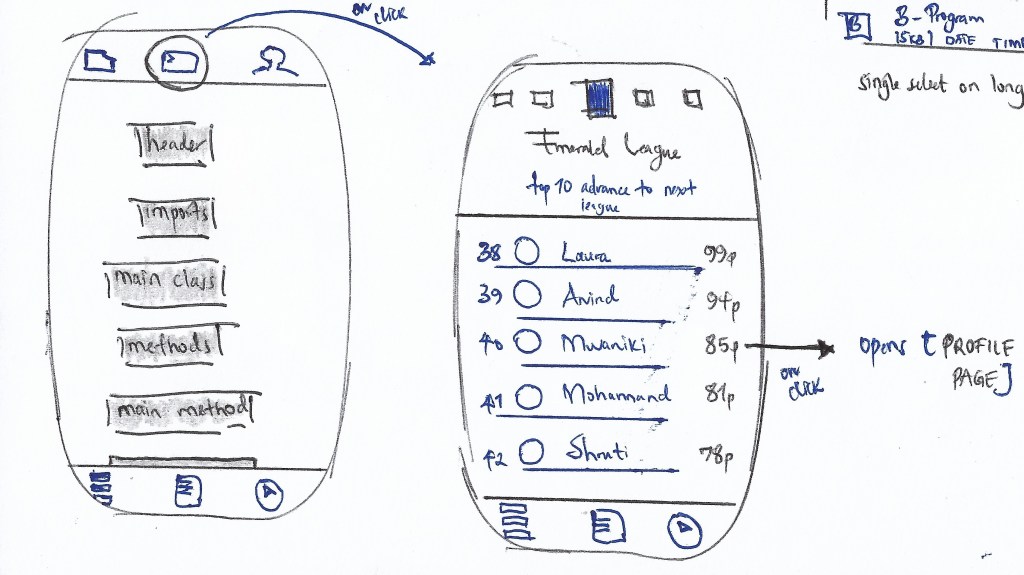 on click
header
imports
main class
methods
main method
Emerald League
top 10 advance to next
league
38 Laura 99p
39 Arvind 94p
40 Mwaniki 85p
41 Mohammand 81p
42 Shruti 78p
on click
opens [PROFILE
PAGE]
B B-Program
15KB] DATE TIME
single select on long